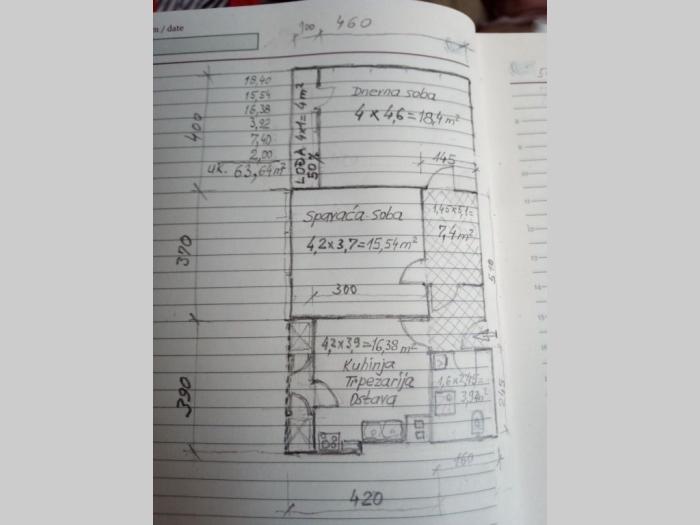 m / date
100
460
18,40
15,54
16,38
3,92
7,40
2,00
uk. 63,64m²
400
370
390
LOĐA 4x1= 4m²
50%
Dnevna soba
4 x 4,6=18,4m²
145
Spavaća soba
4,2x3,7=15,54m²
1,45x5,1=
7,4m²
300
510
4,2x3,9=16,38m²
Kuhinja
Trpezarija
Ostava
1,6x2,45=
3,92m²
245
160
420